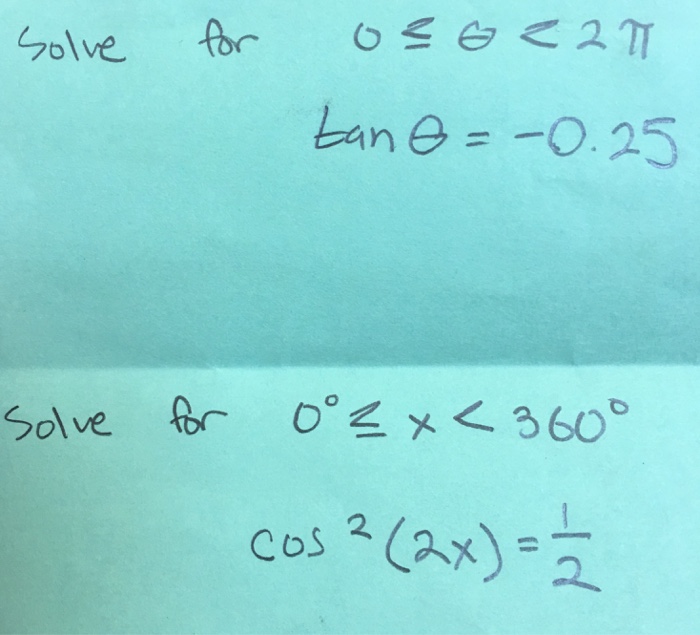 Solve for 0 ≤ θ < 2π
tan θ = -0.25
Solve for 0° ≤ x < 360°
cos²(2x) = 1/2